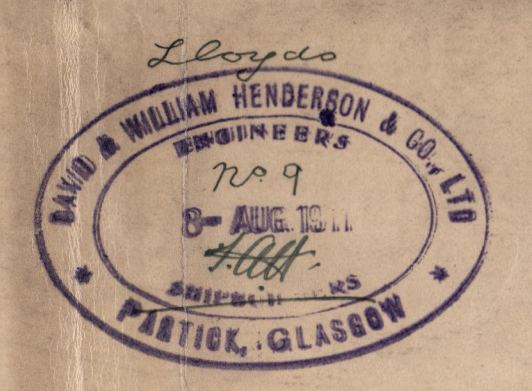 Lloyds
DAVID & WILLIAM HENDERSON & CO., LTD
ENGINEERS
No. 9
8- AUG. 1911
SHIPBUILDERS
PARTICK, GLASGOW